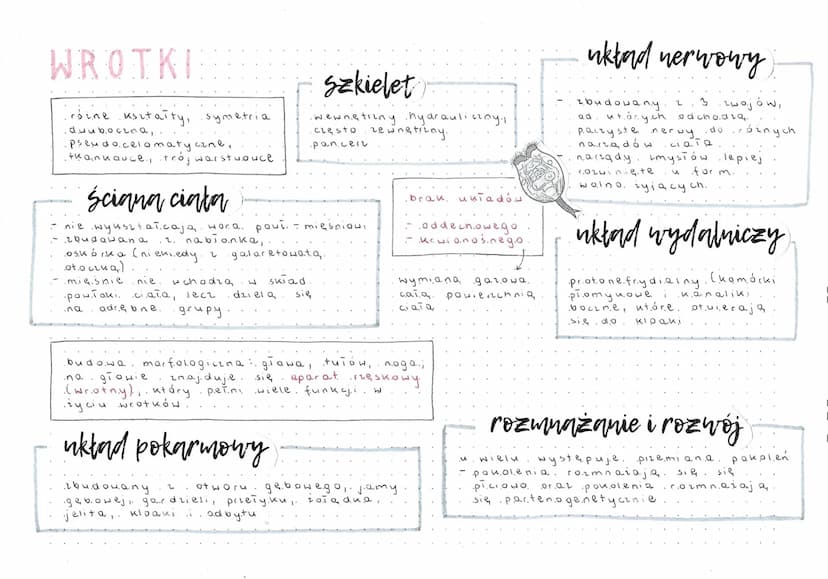 WROTKI
różne kształty, symetria
dwuboczna,
pseudocelomatyczne,
tkankowce, trójwarstwowce
szkielet
wewnętrzny hydrauliczny,
często zewnętrzny
pancerz
układ nerwowy
- zbudowany z 3 zwojów,
od których odchodzą
parzyste nerwy do różnych
narządów ciała
- narządy zmysłów lepiej
rozwinięte u form
wolno żyjących
ściana ciała
- nie wykształcają wora powł.-mięśniowi
- zbudowana z nabłonka,
oskórka (niekiedy z galaretowatą
otoczką)
- mięśnie nie wchodzą w skład
powłoki ciała, lecz dzielą się
na odrębne grupy
brak układów
- oddechowego
- krwionośnego
wymiana gazowa
całą powierzchnią
ciała
układ wydalniczy
protonefrydialny (komórki
płomykowe i kanaliki
boczne, które otwierają
się do kloaki
budowa morfologiczna: głowa, tułów, noga;
na głowie znajduje się aparat rzęskowy
(wrotny), który pełni wiele funkcji w
życiu wrotków
układ pokarmowy
zbudowany z otworu gębowego, jamy
gębowej, gardzieli, przełyku, żołądka,
jelita, kloaki i odbytu
rozmnażanie i rozwój
u wielu występuje przemiana pokoleń
- pokolenia rozmnażają się się
płciowo oraz pokolenia rozmnażają
się partenogenetycznie